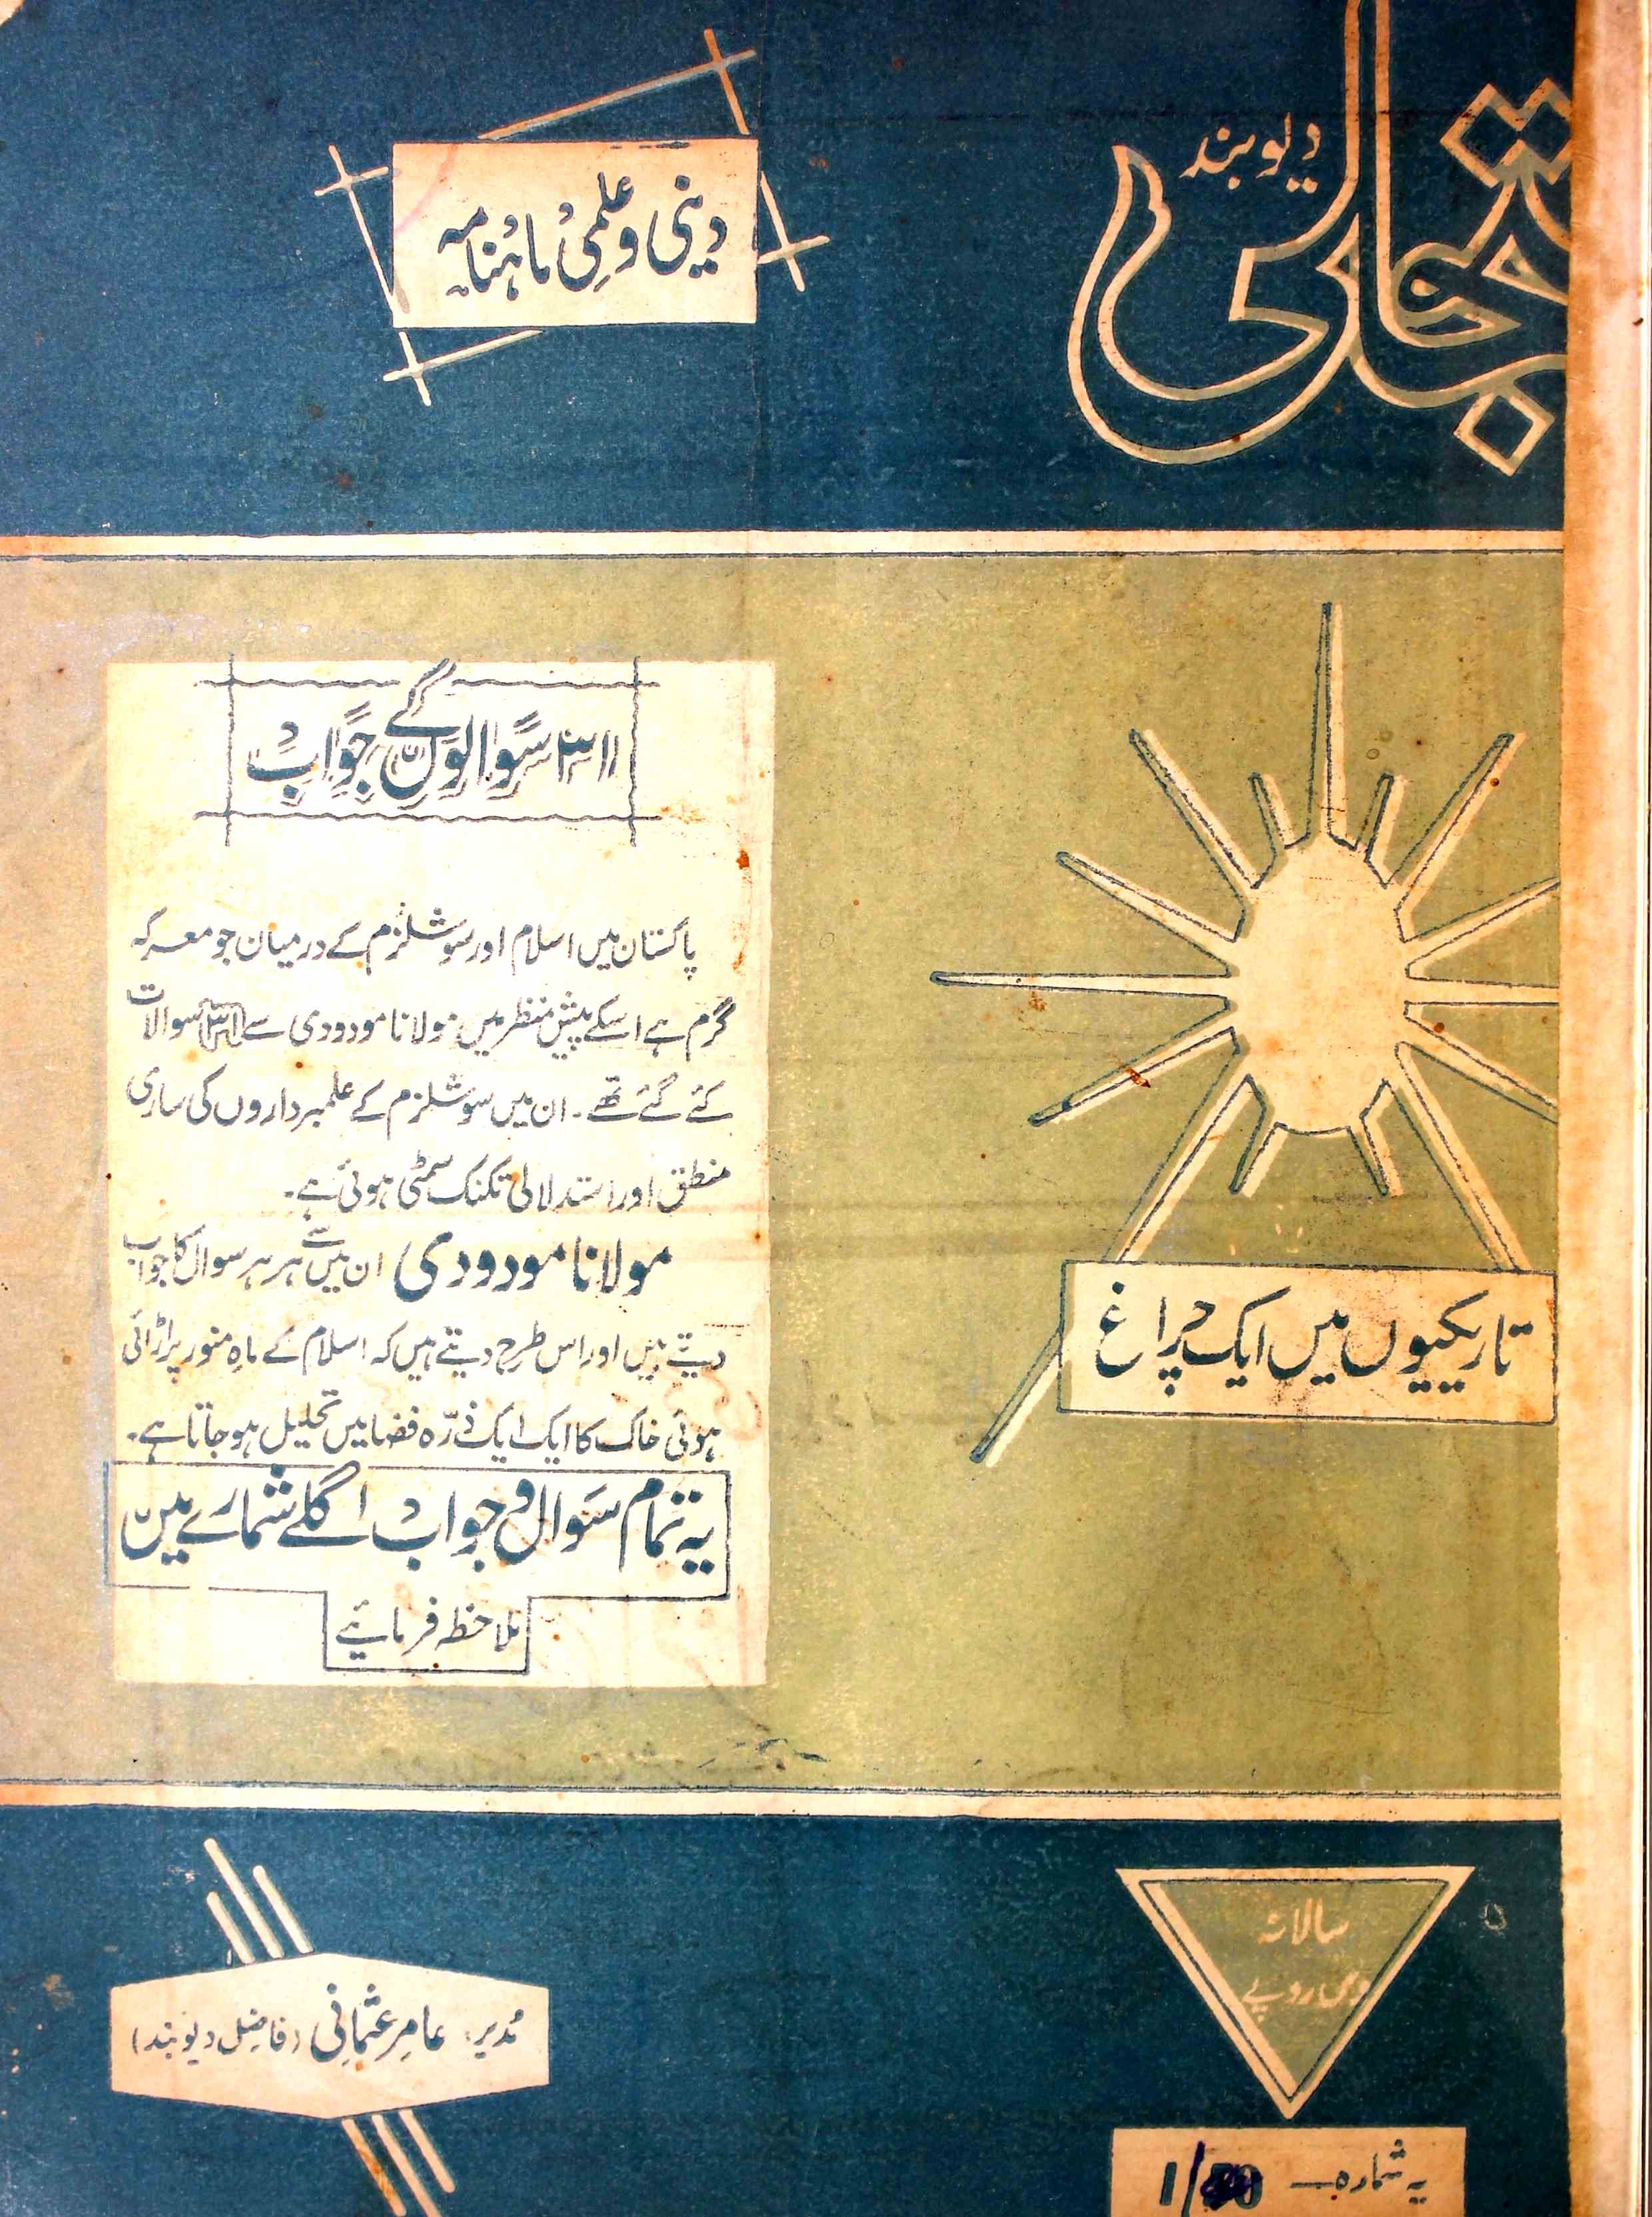 تجلی
دیوبند
دینی و علمی ماہنامہ
۳۱ سوالوں کے جواب
پاکستان میں اسلام اور سوشلزم کے درمیان جو معرکہ
گرم ہے اسکے پیش منظر میں مولانا مودودی سے ۳۱ سوالات
کئے گئے تھے۔ ان میں سوشلزم کے علمبرداروں کی ساری
منطق اور استدلالی تکنک سمٹی ہوئی ہے۔
مولانا مودودی ان میں سے ہر ہر سوال کا جواب
دیتے ہیں اور اس طرح دیتے ہیں کہ اسلام کے ماہِ منور پر اڑائی
ہوئی خاک کا ایک ایک ذرّہ فضا میں تحلیل ہو جاتا ہے۔
یہ تمام سوال و جواب اگلے شمارے میں
ملاحظہ فرمائیے
تاریکیوں میں ایک چراغ
سالانہ
دس روپے
مُدیر: عامر عثمانی (فاضل دیوبند)
یہ شمارہ — 1/